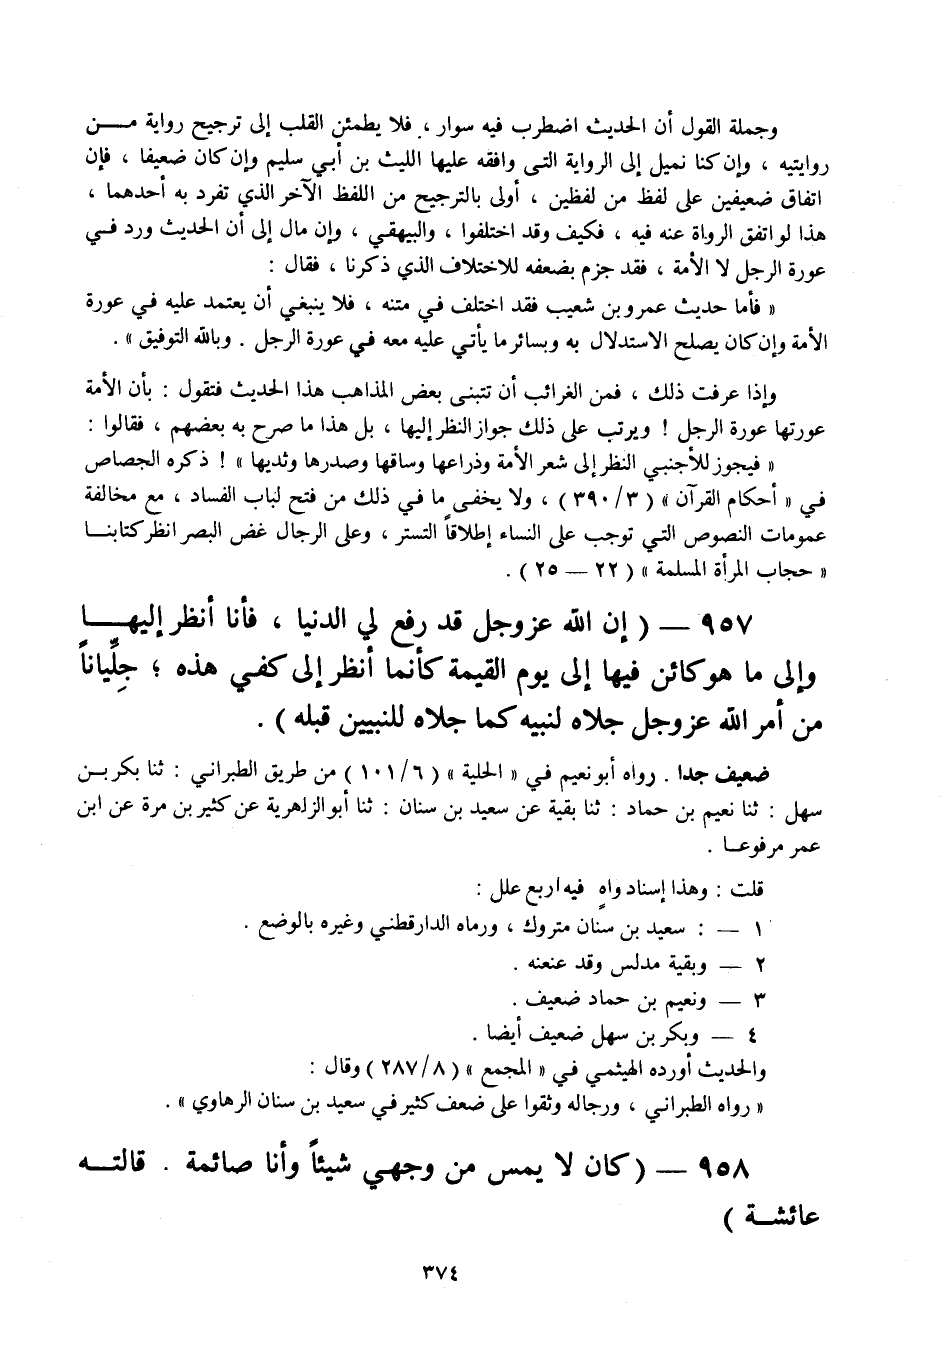 وجملة القول أن الحديث اضطرب فيه سوار ، فلا يطمئن القلب إلى ترجيح رواية مـــن
روايتيه ، وإن كنا نميل إلى الرواية التى وافقه عليها الليث بن أبي سليم وإن كان ضعيفا ، فإن
اتفاق ضعيفين على لفظ من لفظين ، أولى بالترجيح من اللفظ الآخر الذي تفرد به أحدهما ،
هذا لو اتفق الرواة عنه فيه ، فكيف وقد اختلفوا ، والبيهقي ، وإن مال إلى أن الحديث ورد في
عورة الرجل لا الأمة ، فقد جزم بضعفه للاختلاف الذي ذكرنا ، فقال :
« فأما حديث عمرو بن شعيب فقد اختلف في متنه ، فلا ينبغي أن يعتمد عليه في عورة
الأمة وإن كان يصلح الاستدلال به وبسائر ما يأتي عليه معه في عورة الرجل . وبالله التوفيق » .
وإذا عرفت ذلك ، فمن الغرائب أن تتبنى بعض المذاهب هذا الحديث فتقول : بأن الأمة
عورتها عورة الرجل ! ويرتب على ذلك جواز النظر إليها ، بل هذا ما صرح به بعضهم ، فقالوا :
« فيجوز للأجنبي النظر إلى شعر الأمة وذراعها وساقها وصدرها وثديها » ! ذكره الجصاص
في « أحكام القرآن » ( ٣/ ٣٩٠ ) ، ولا يخفى ما في ذلك من فتح لباب الفساد ، مع مخالفة
عمومات النصوص التي توجب على النساء إطلاقاً التستر ، وعلى الرجال غض البصر انظر كتابنــا
« حجاب المرأة المسلمة » ( ٢٢ – ٢٥ ) .
٩٥٧ – ( إن الله عز وجل قد رفع لي الدنيا ، فأنا أنظر إليهــا
وإلى ما هو كائن فيها إلى يوم القيمة كأنما أنظر إلى كفي هذه ؛ جِلِّياناً
من أمر الله عز وجل جلاه لنبيه كما جلاه للنبيين قبله ) .
ضعيف جدا . رواه أبو نعيم في « الحلية » ( ٦/ ١٠١ ) من طريق الطبراني : ثنا بكر بـن
سهل : ثنا نعيم بن حماد : ثنا بقية عن سعيد بن سنان : ثنا أبو الزاهرية عن كثير بن مرة عن ابن
عمر مرفوعـا .
قلت : وهذا إسناد واهٍ فيه اربع علل :
١ – : سعيد بن سنان متروك ، ورماه الدارقطني وغيره بالوضع .
٢ – وبقية مدلس وقد عنعنه .
٣ – ونعيم بن حماد ضعيف .
٤ – وبكر بن سهل ضعيف أيضا .
والحديث أورده الهيثمي في « المجمع » ( ٨/ ٢٨٧ ) وقال :
« رواه الطبراني ، ورجاله وثقوا على ضعف كثير في سعيد بن سنان الرهاوي » .
٩٥٨ – ( كان لا يمس من وجهي شيئاً وأنا صائمة . قالتــه
عائشــة )
٣٧٤